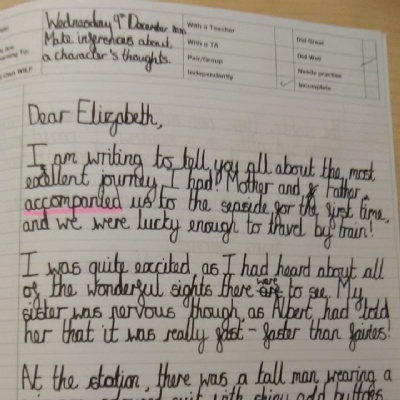 Wednesday 9th December
Make inferences about
a character's thoughts.
Own WILF
With a Teacher
With a TA
Pair/Group
Independently
Did Great
Did Well
Needs practise
Incomplete
Dear Elizabeth,
I am writing to tell you all about the most
excellent journey I had! Mother and Father
accompanied us to the seaside for the first time,
and we were lucky enough to travel by train!
I was quite excited, as I had heard about all
of the wonderful sights there were to see. My
sister was nervous though, as Albert had told
her that it was really fast - faster than fairies!
At the station, there was a tall man wearing a
suit with shiny gold buttons